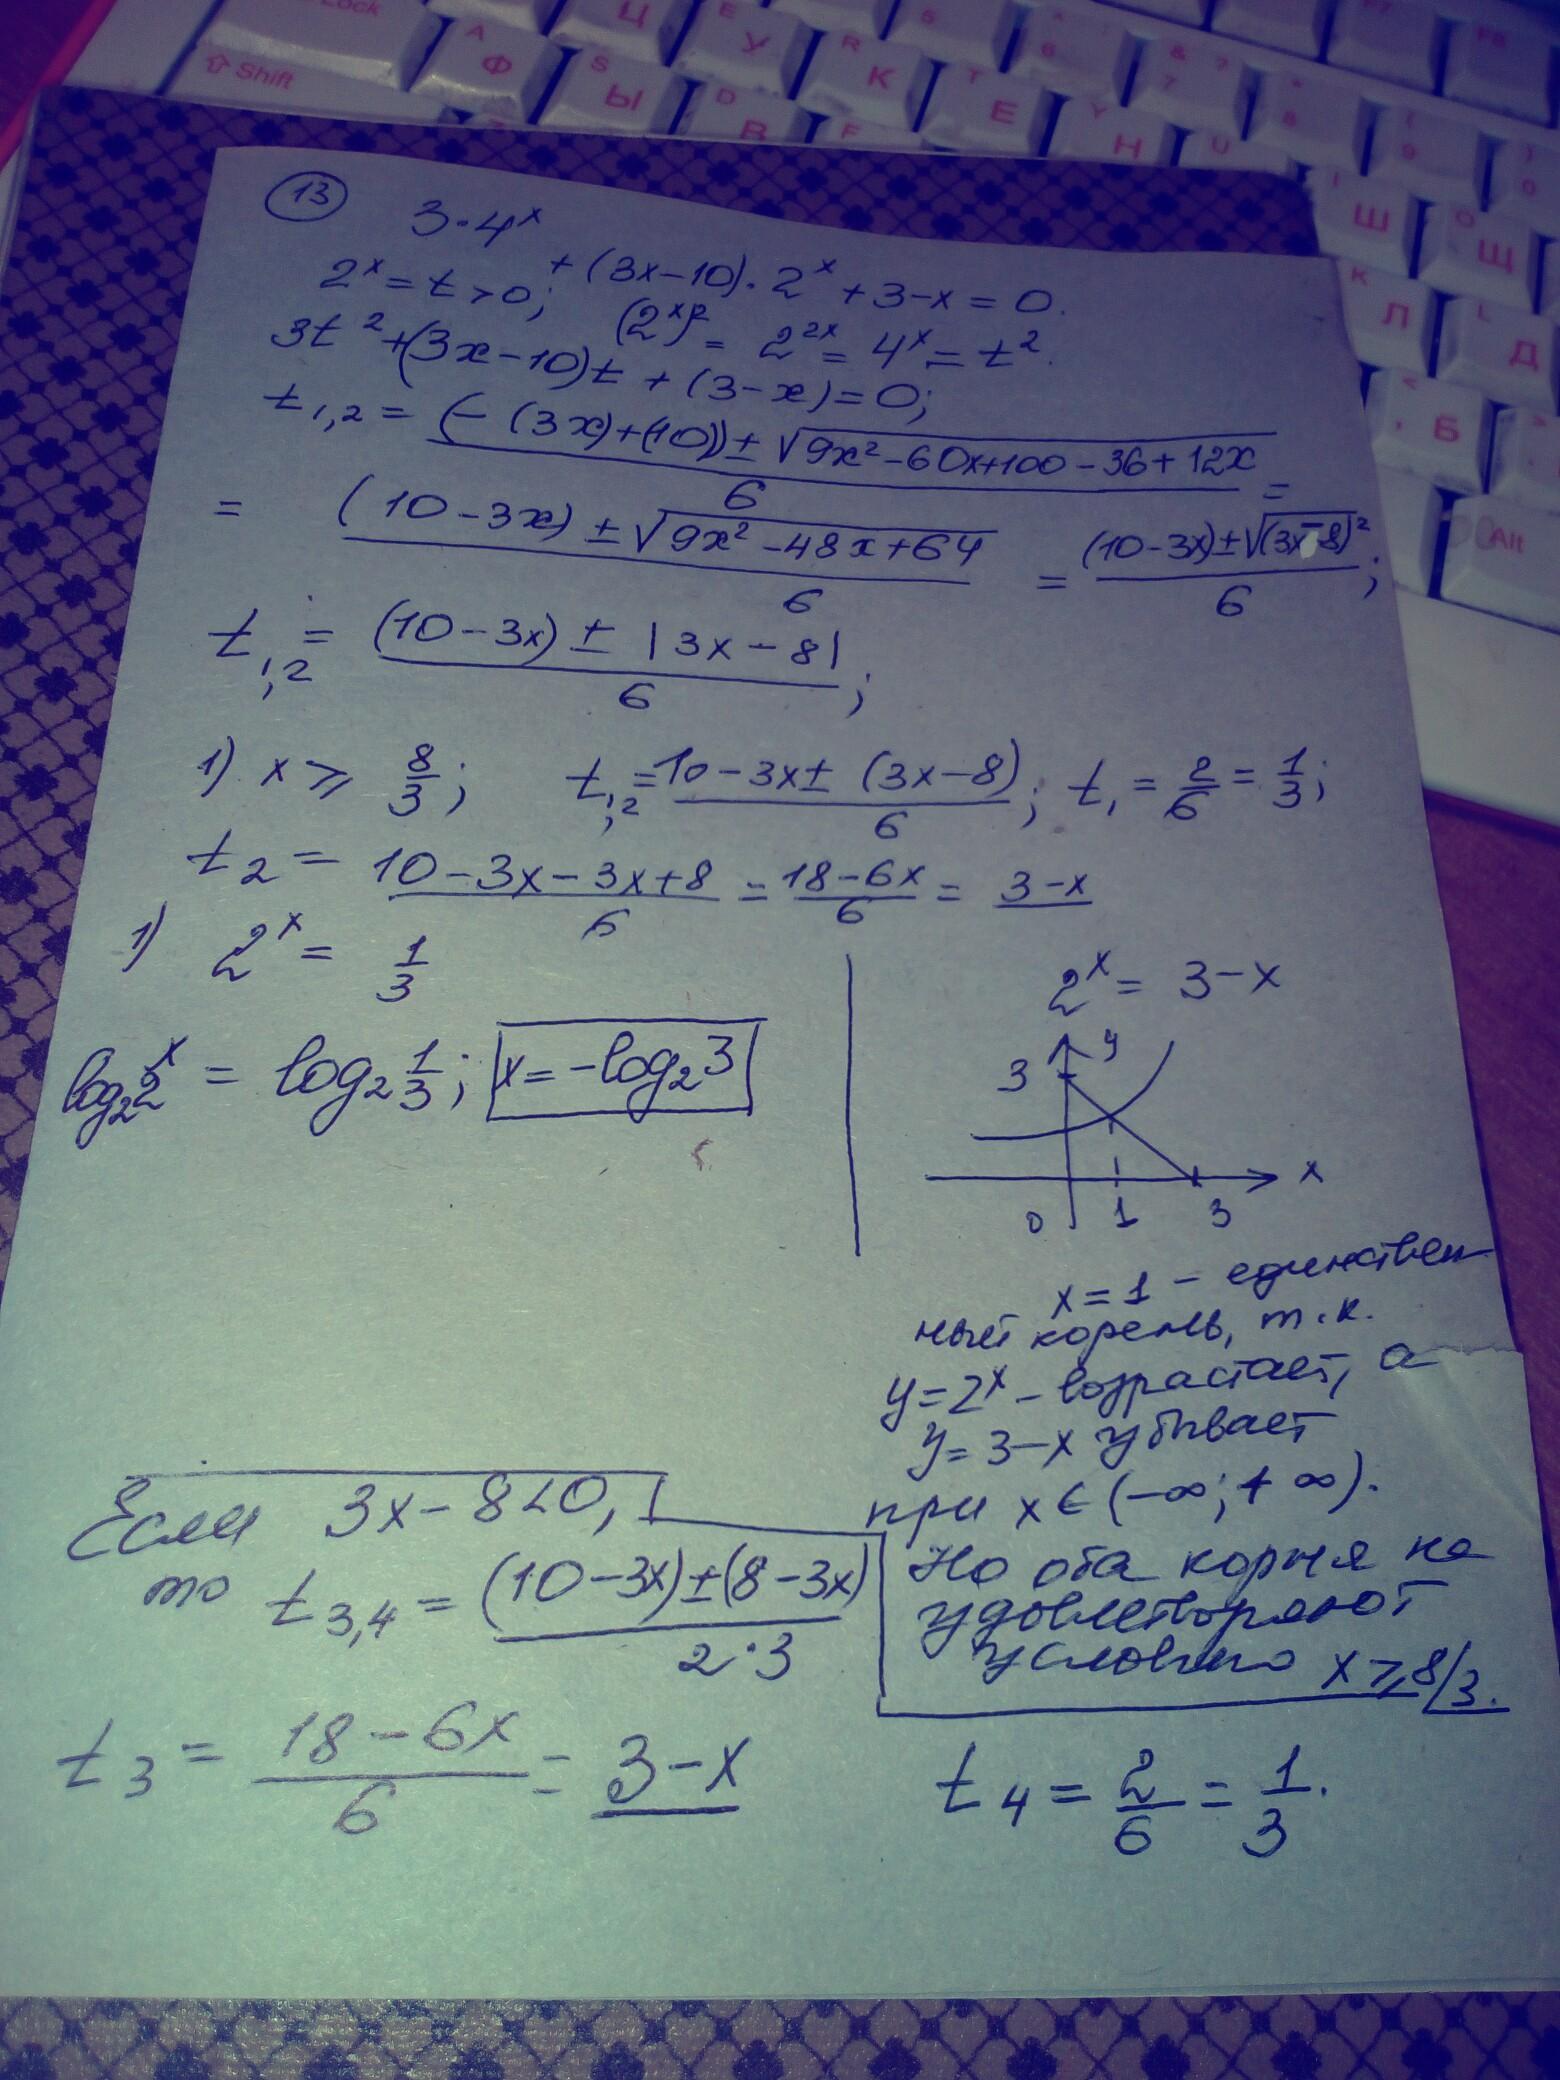 Lock
⇧ Shift
A Ф
S Ы
D В
F
Ц
E У
R К
T Е
Y Н
U
Ш
O Щ
K Л
L Д
Б
Alt
13
3·4ˣ + (3x−10)·2ˣ + 3−x = 0.
2ˣ = t > 0; (2ˣ)² = 2²ˣ = 4ˣ = t².
3t² + (3x−10)t + (3−x) = 0;
t₁,₂ = (−(3x)+(10)) ± √9x²−60x+100−36+12x / 6 =
= (10−3x) ± √9x²−48x+64 / 6 = (10−3x) ± √(3x−8)² / 6;
t₁,₂ = (10−3x) ± |3x−8| / 6;
1) x ⩾ 8/3; t₁,₂ = 10−3x ± (3x−8) / 6; t₁ = 2/6 = 1/3;
t₂ = 10−3x−3x+8 / 6 = 18−6x / 6 = 3−x
1) 2ˣ = 1/3
log₂2ˣ = log₂ 1/3; x = −log₂3
2ˣ = 3−x
y
3
x
0 1 3
x = 1 − единствен
ный корень, т.к.
y = 2ˣ − возрастает, а
y = 3−x убывает
при x ∈ (−∞; +∞).
Но оба корня не
удовлетворяют
условию x ⩾ 8/3.
Если 3x−8<0,
то t₃,₄ = (10−3x) ± (8−3x) / 2·3
t₃ = 18−6x / 6 = 3−x
t₄ = 2/6 = 1/3.